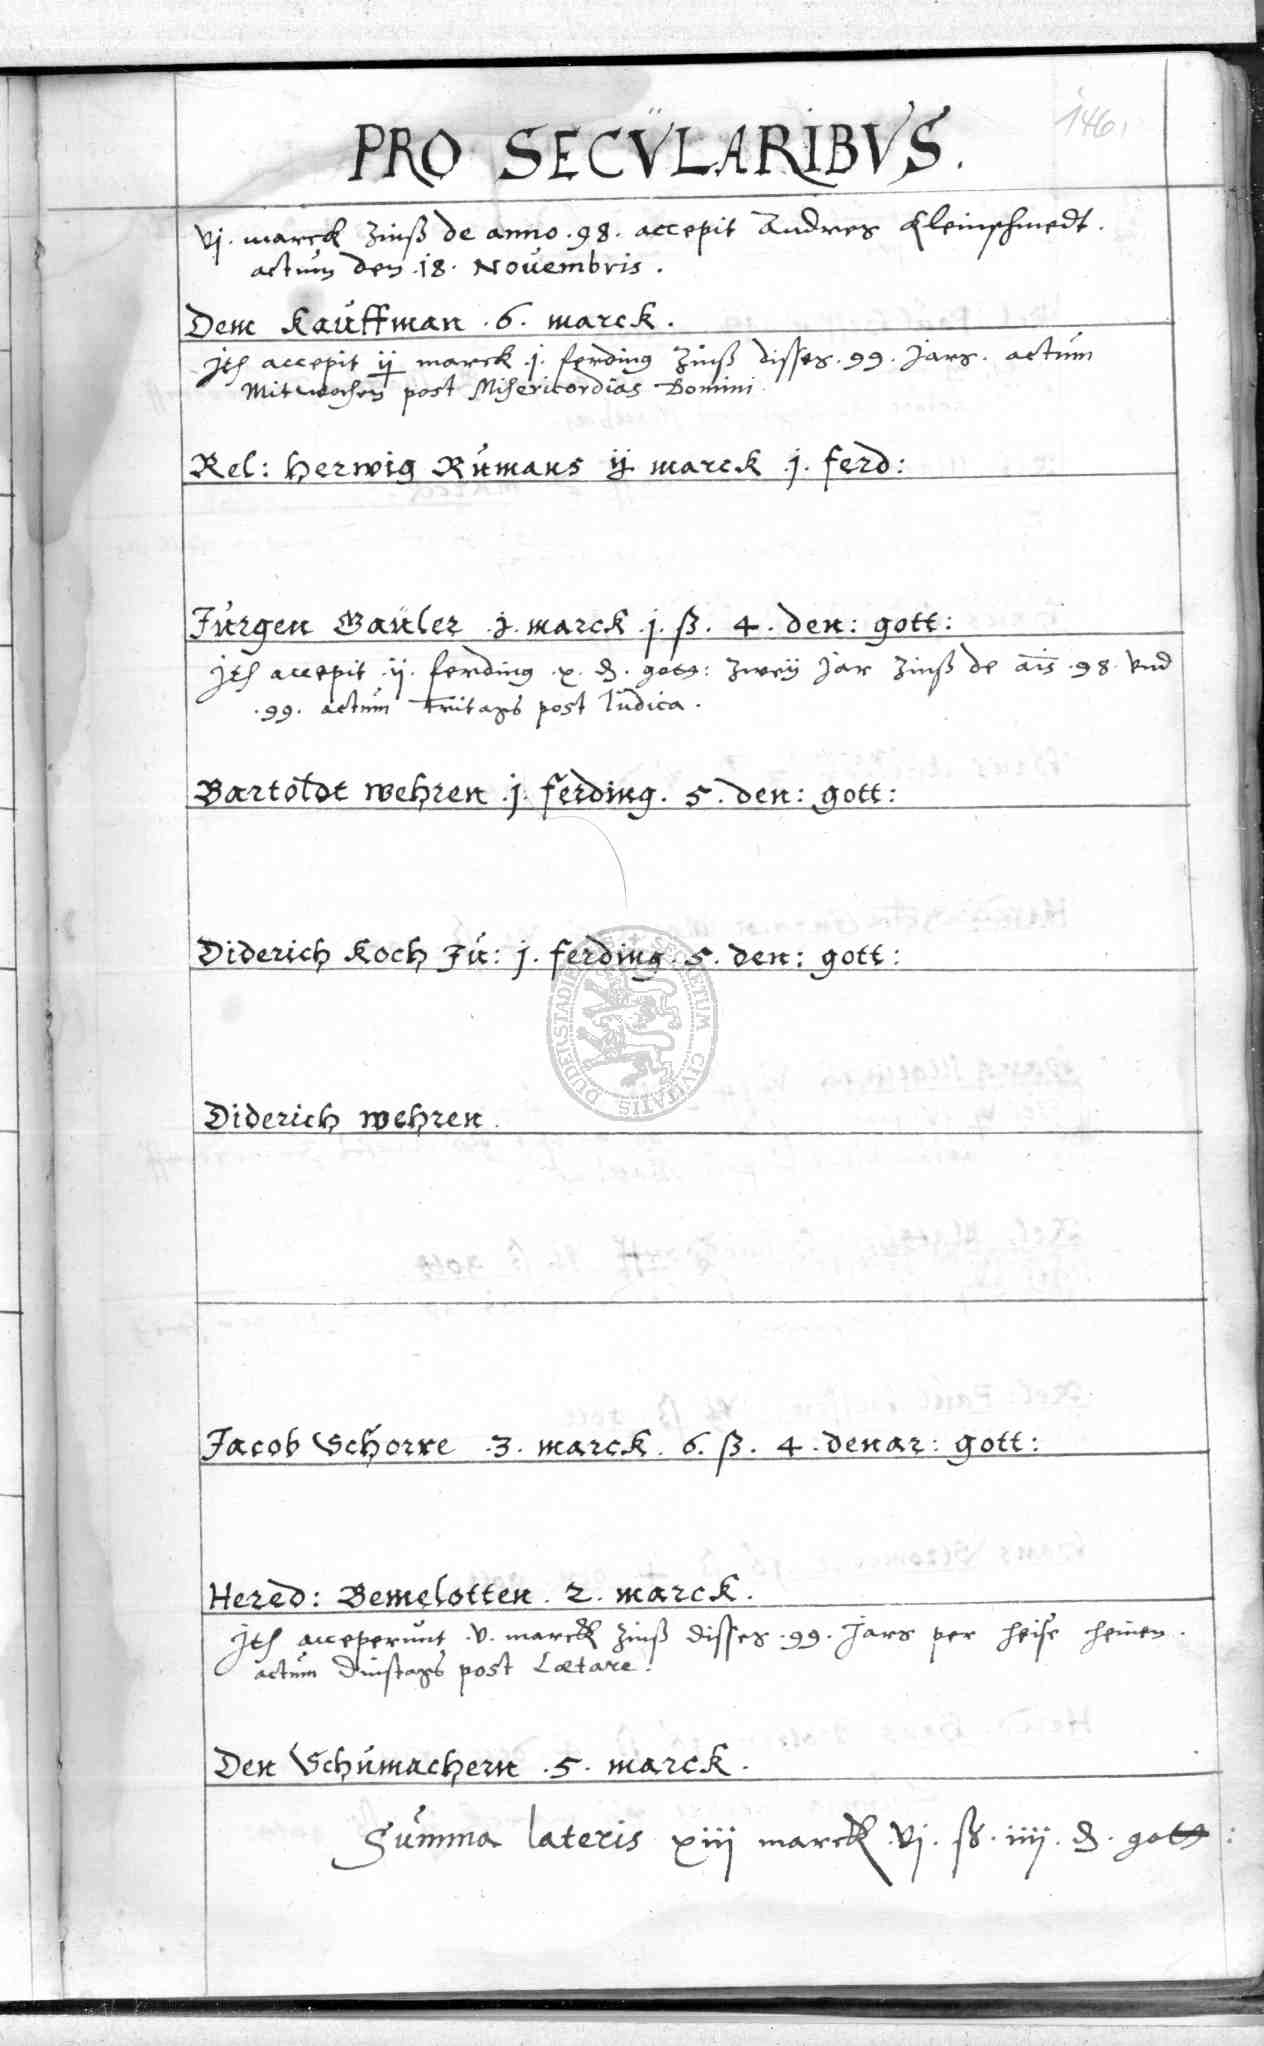 146.
PRO SECVLARIBVS.
vj. marck Zinß de anno .98. accepit Andres Kleinschmedt.
actum den .18. Novembris.
Dem Kauffman .6. marck.
accepit ij marck .j. ferding Zinß disses .99. Jars. actum
Mitwochen post Misericordias Domini
Rel: Herwig Rumans ij marck .j. ferd:
Jurgen Gauler .j. marck .j. ß. 4. den: gott:
accepit .ij. ferding .x. d. gott: zweij Jar Zinß de ais .98. vnd
.99. actum post Iudica.
Bartoldt wehren .j. ferding. 5. den: gott:
Diderich Koch Ju: j. ferding. 5. den: gott:
DUDERSTADIENSIS + SECRETUM CIVITATIS
Diderich wehren.
Jacob Schorre .3. marck. 6. ß. 4. denar: gott:
Hered: Bemelotten. 2. marck.
acceperunt .v. marck Zinß disses .99. Jars per Heise Heinen.
actum Dinstags post Lætare.
Den Schumachern .5. marck.
Summa lateris xiij marck .vj. ß. iiij. d. gott: